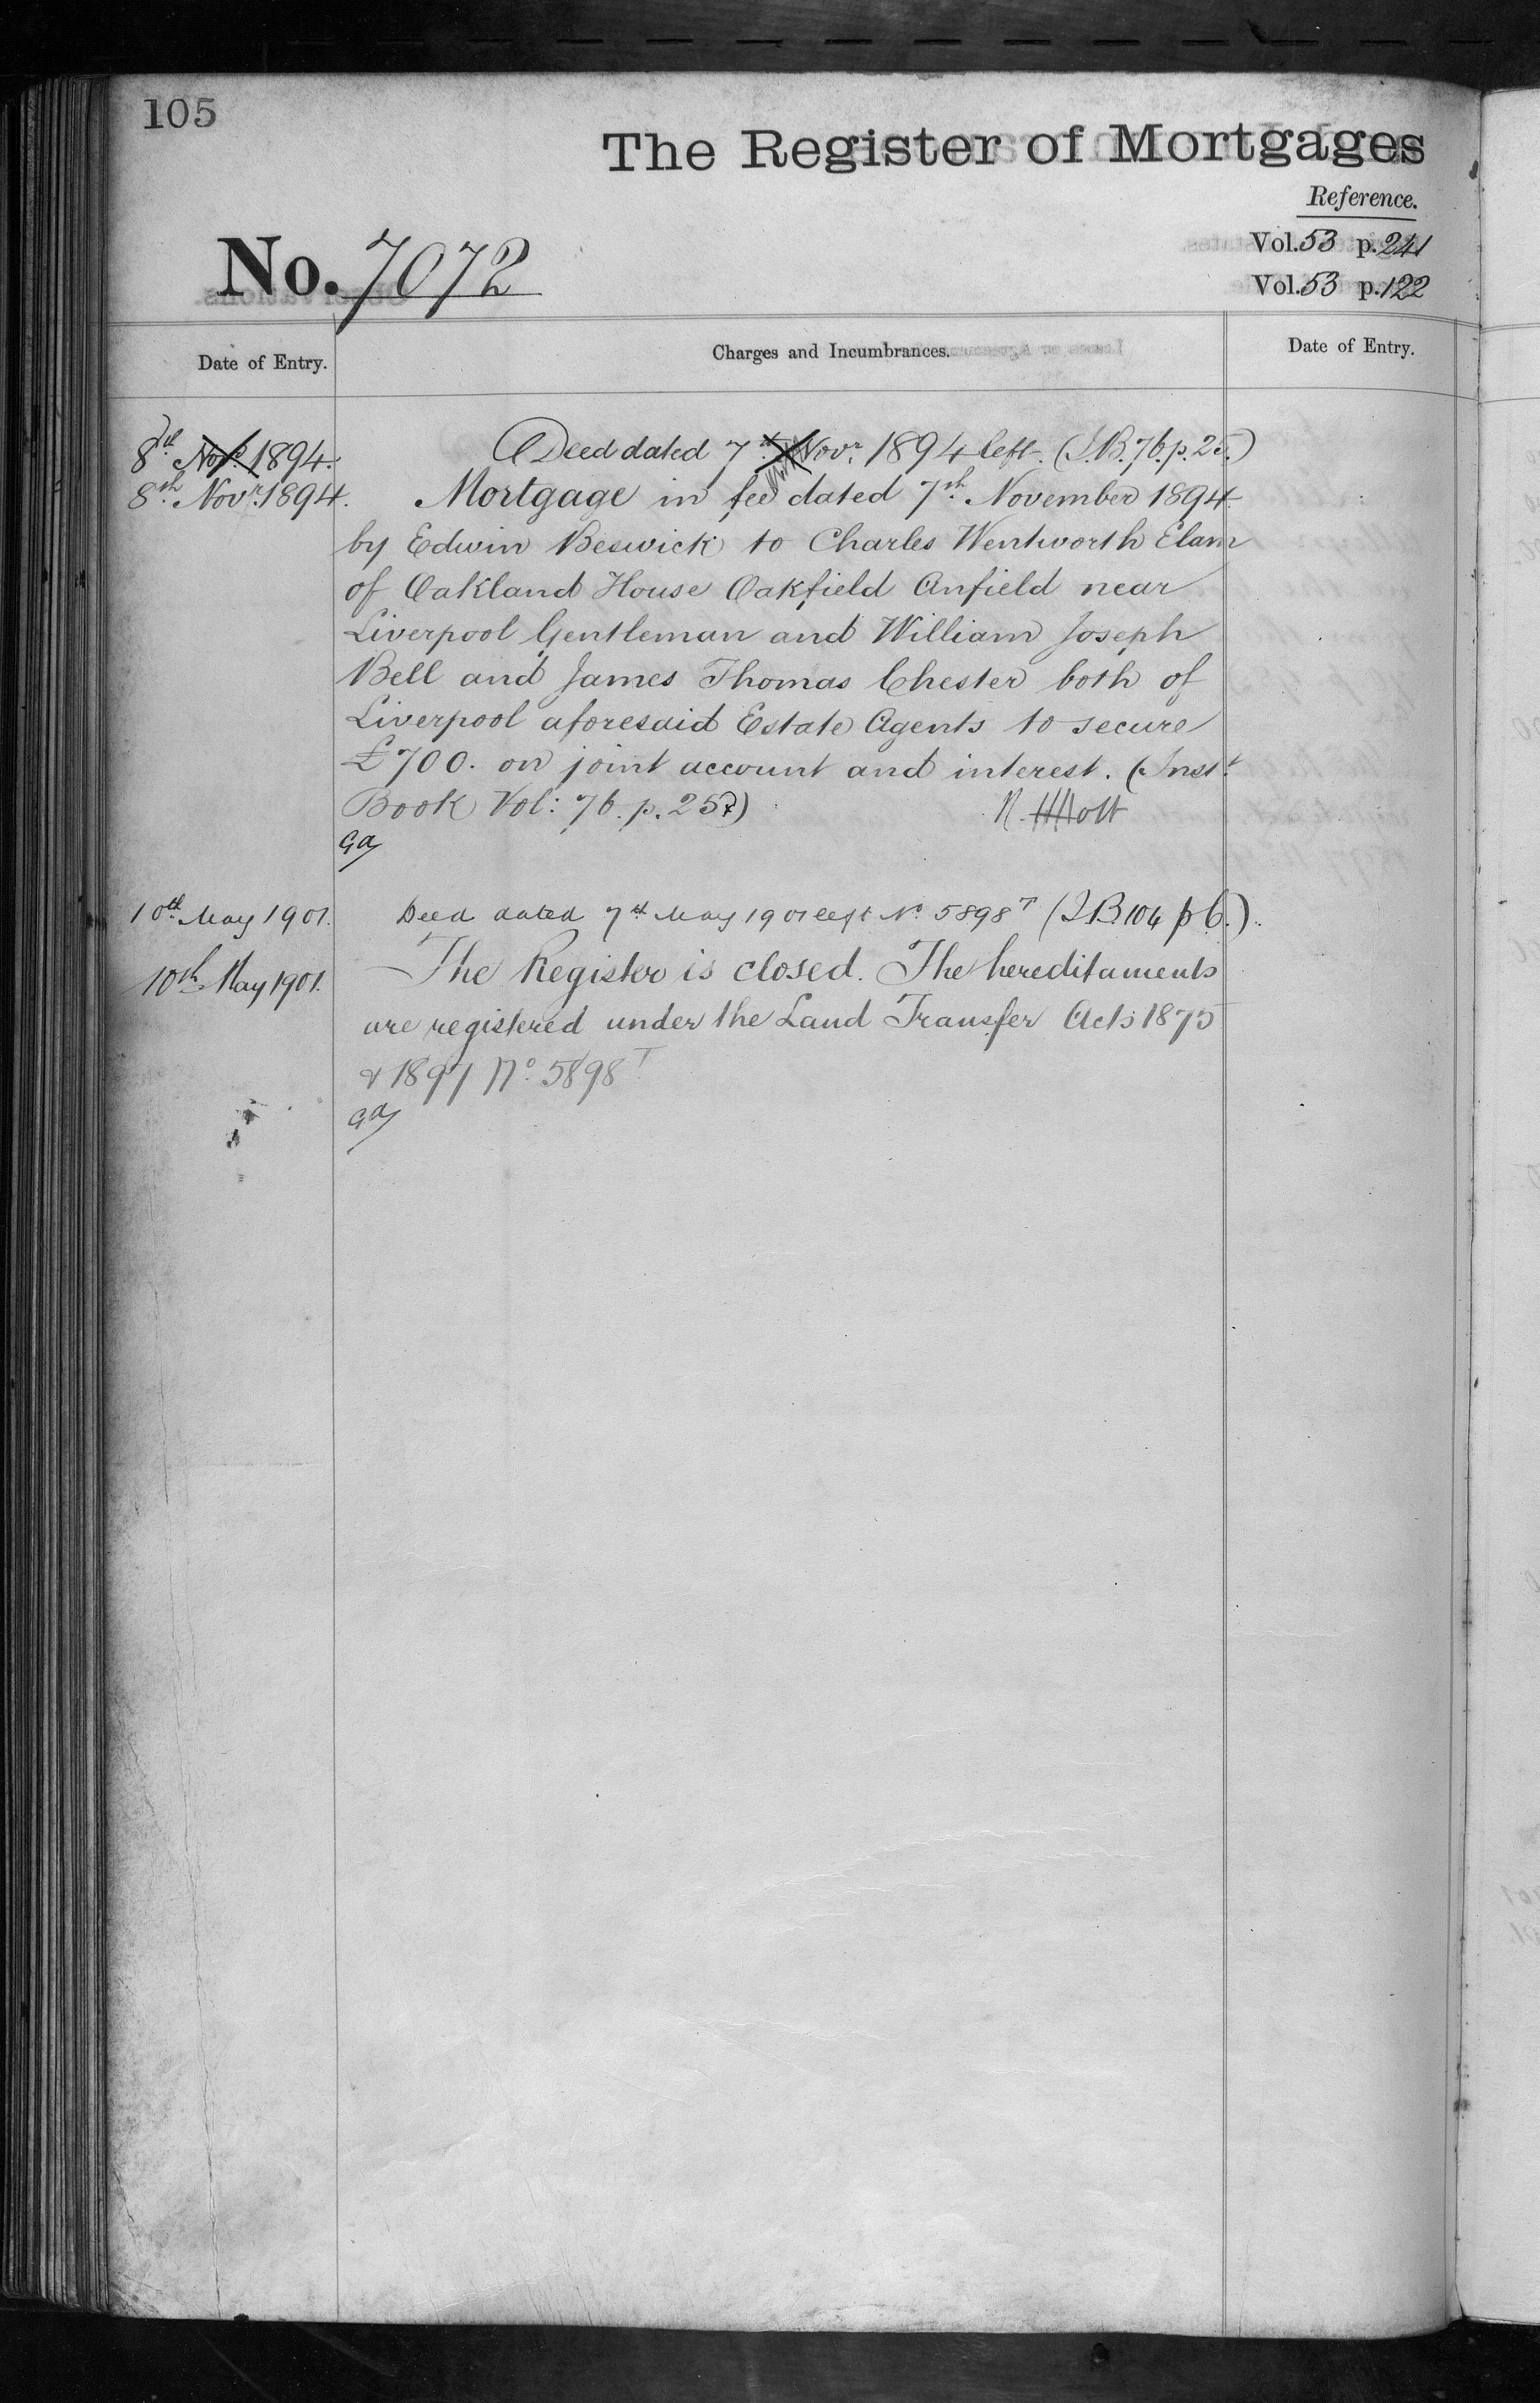 105
The Register of Mortgages
Reference.
Vol. 53 p. 241
No. 7072
Vol. 53 p. 122
Date of Entry.
Charges and Incumbrances.
Date of Entry.
8th Novr. 1894.
Deed dated 7th Novr. 1894 left. (I.B. 76. p. 25.)
8th Novr. 1894.
Mortgage in fee dated 7th November 1894
by Edwin Beswick to Charles Wentworth Elam
of Oakland House Oakfield Anfield near
Liverpool Gentleman and William Joseph
Bell and James Thomas Chester both of
Liverpool aforesaid Estate Agents to secure
£700. on joint account and interest. (Inst.
Book Vol: 76. p. 25)
R. Holt
10th May 1901.
Deed dated 7th May 1901 left No. 5898 T (I.B. 104 p 6.)
10th May 1901.
The Register is closed. The hereditaments
are registered under the Land Transfer Acts 1875
& 1897 No. 5898 T